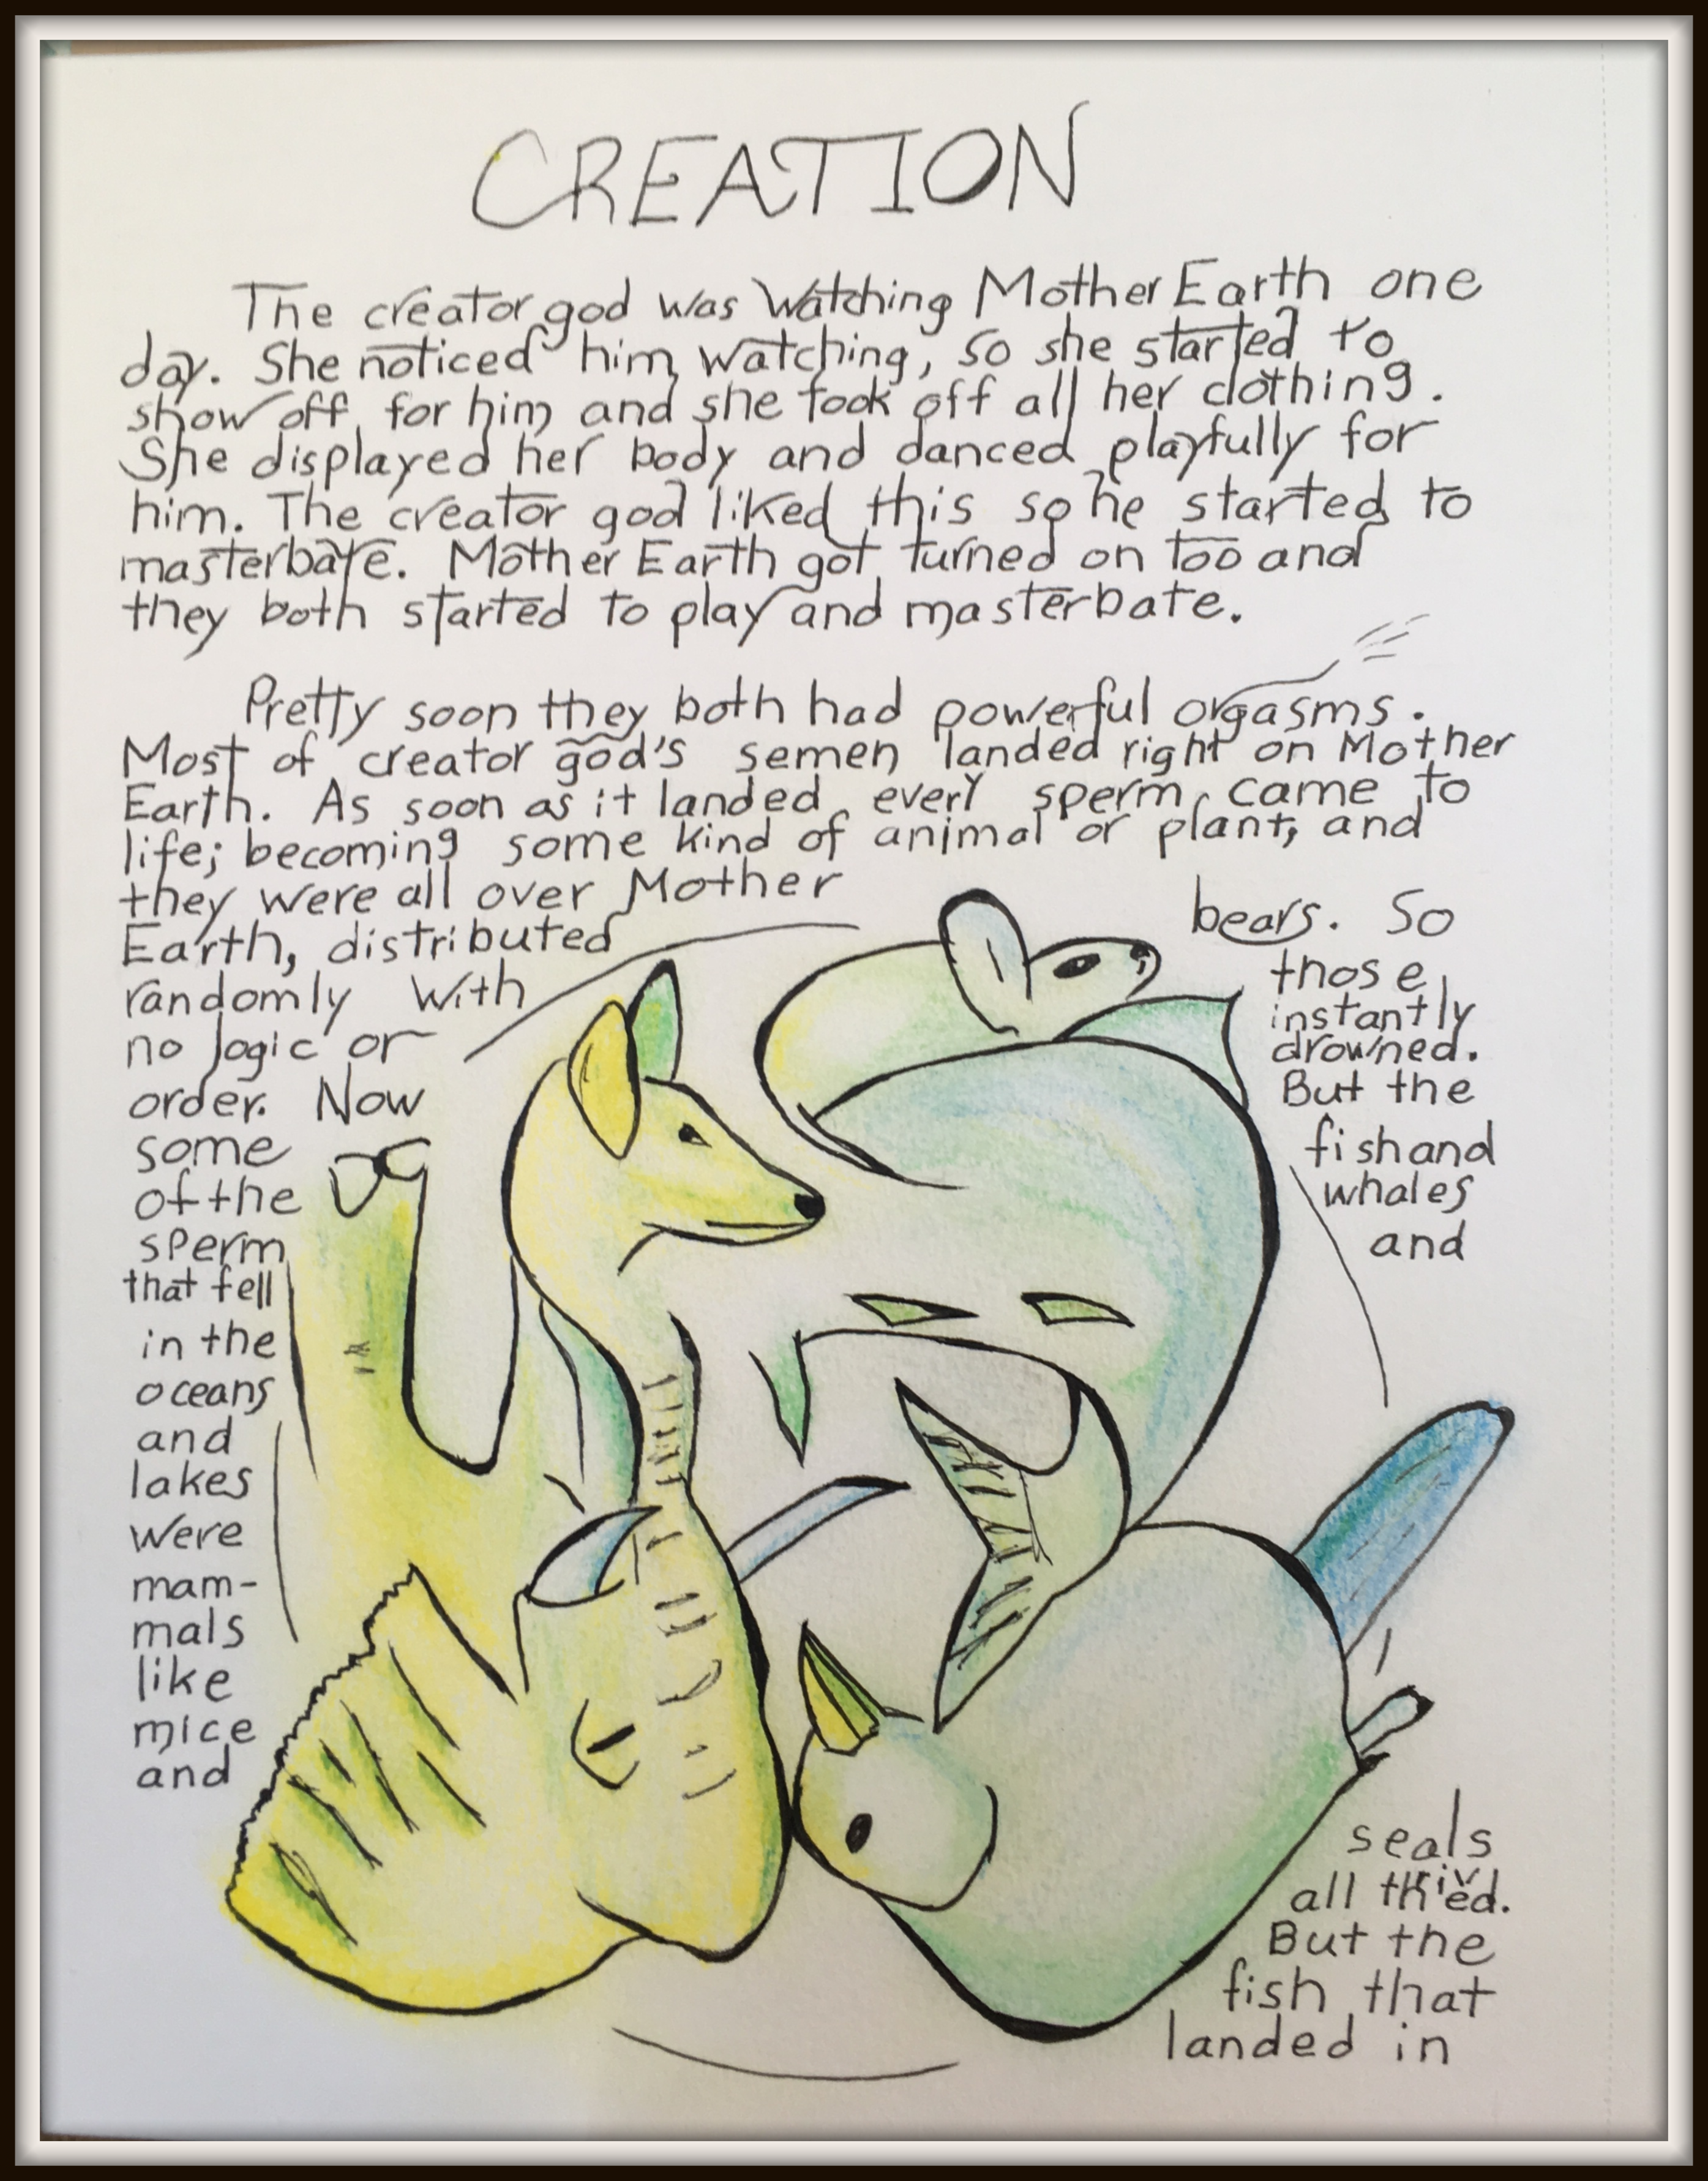 CREATION
The creator god was watching Mother Earth one
day. She noticed him watching, so she started to
show off for him and she took off all her clothing.
She displayed her body and danced playfully for
him. The creator god liked this so he started to
masterbate. Mother Earth got turned on too and
they both started to play and masterbate.
Pretty soon they both had powerful orgasms.
Most of creator god's semen landed right on Mother
Earth. As soon as it landed every sperm came to
life; becoming some kind of animal or plant, and
they were all over Mother
Earth, distributed
randomly with
no logic or
order. Now
some
of the
sperm
that fell
in the
oceans
and
lakes
were
mam-
mals
like
mice
and
bears. So
those
instantly
drowned.
But the
fish and
whales
and
seals
all thrived.
But the
fish that
landed in